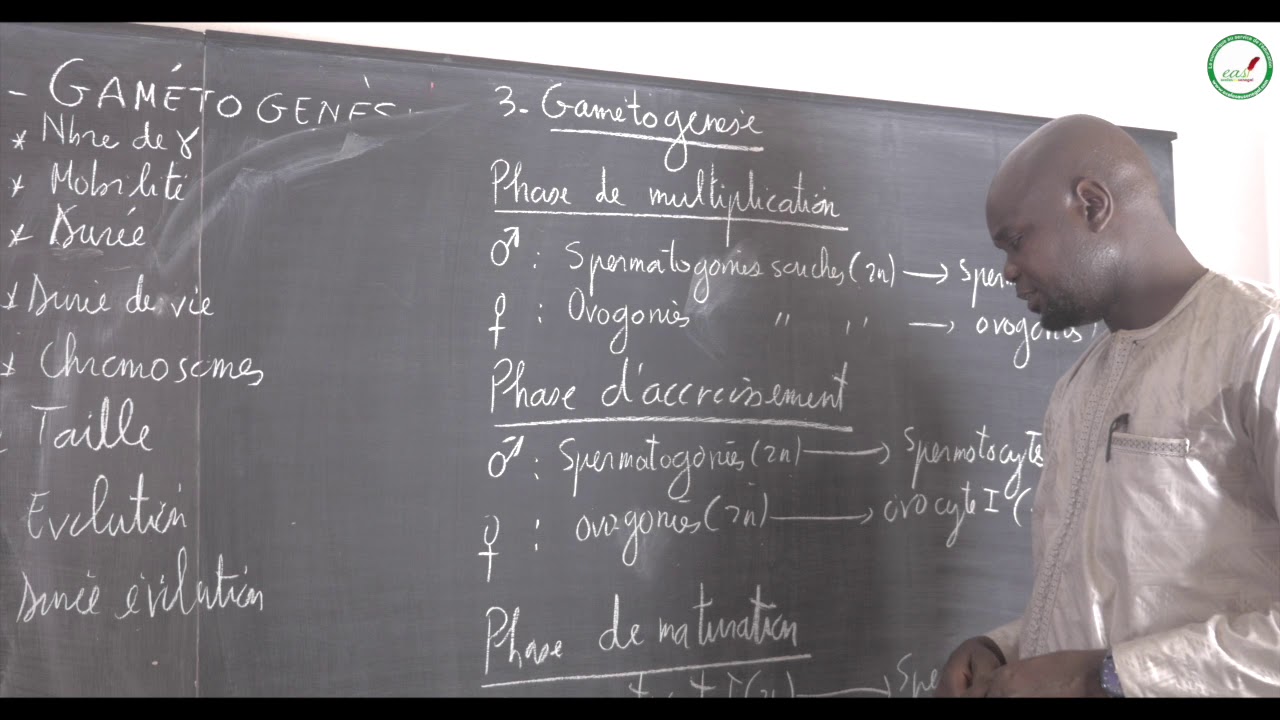 - GAMÉTOGENÈS
* Nbre de γ
* Mobilité
* Durée
* Durée de vie
* Chromosomes
Taille
Evolution
Durée évolution
3. Gamétogenèse
Phase de multiplication
♂ : Spermatogonies souches (2n) → Sperm
♀ : Ovogonies " " → ovogonies
Phase d'accroissement
♂ : Spermatogonies (2n) → Spermotocyte
♀ : ovogonies (2n) → ovocyte I (
Phase de maturation
eas